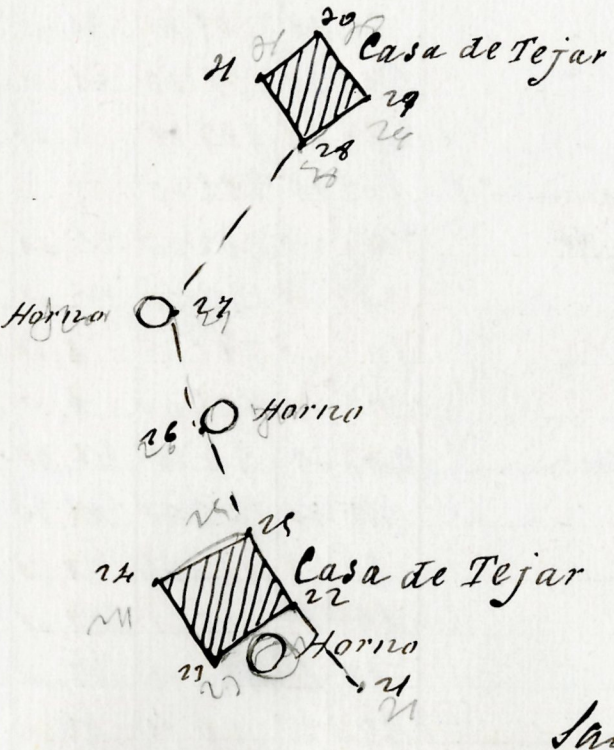 30
31 Casa de Tejar
29
28
Horno 27
26 Horno
25
24 Casa de Tejar
22
Horno
23
21